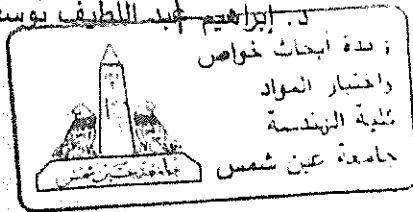 د. إبراهيم عبد اللطيف يوسف
وحدة أبحاث خواص
واختبار المواد
كلية الهندسة
جامعة عين شمس
جامعة عين شمس